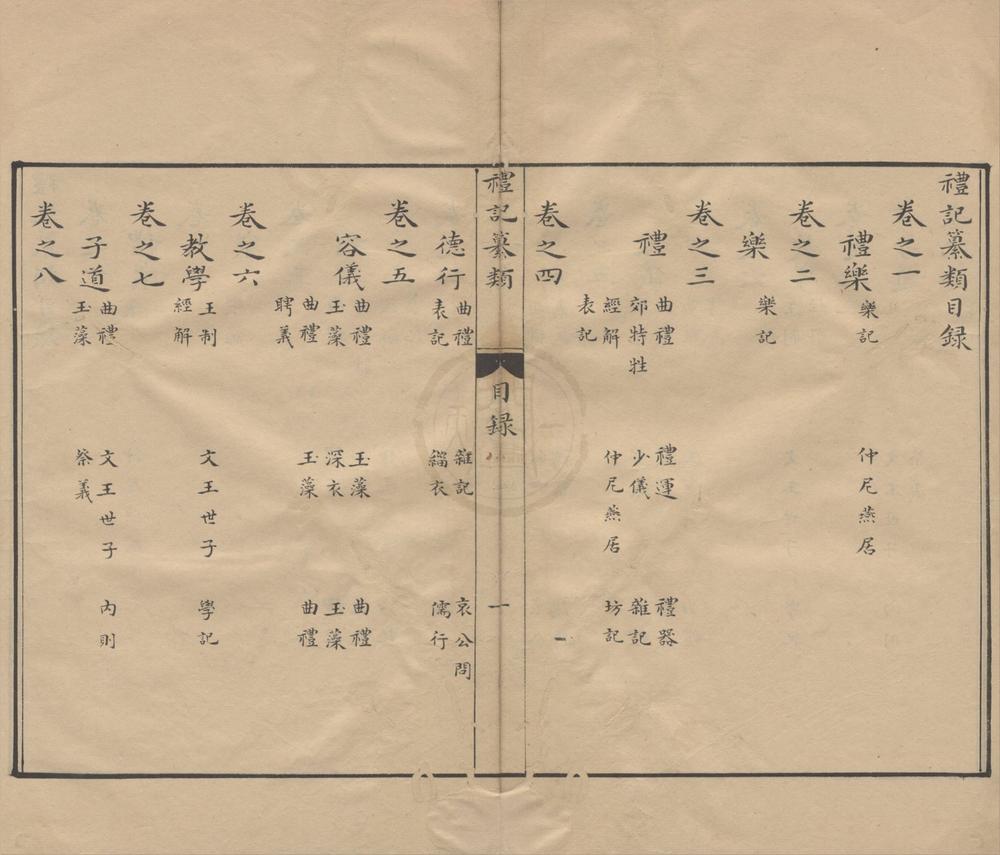 禮記纂類目録
卷之一
禮樂 樂記 仲尼燕居
卷之二
樂 樂記
卷之三
禮 曲禮 禮運 禮器
郊特牲 少儀 雜記
經解 仲尼燕居 坊記
表記
卷之四
禮記纂類 目録 一
德行 曲禮 雜記 哀公問
表記 緇衣 儒行
卷之五
容儀 曲禮 玉藻 曲禮
玉藻 深衣 玉藻
曲禮 玉藻 曲禮
聘義
卷之六
教學 王制 文王世子 學記
經解
卷之七
子道 曲禮 文王世子 內則
玉藻 祭義
卷之八